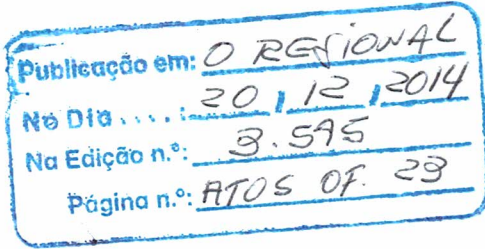 Publicação em: O REGIONAL
No Dia . . . . : 20 / 12 / 2014
Na Edição n.º: 3.595
Página n.º: ATOS OF. 23